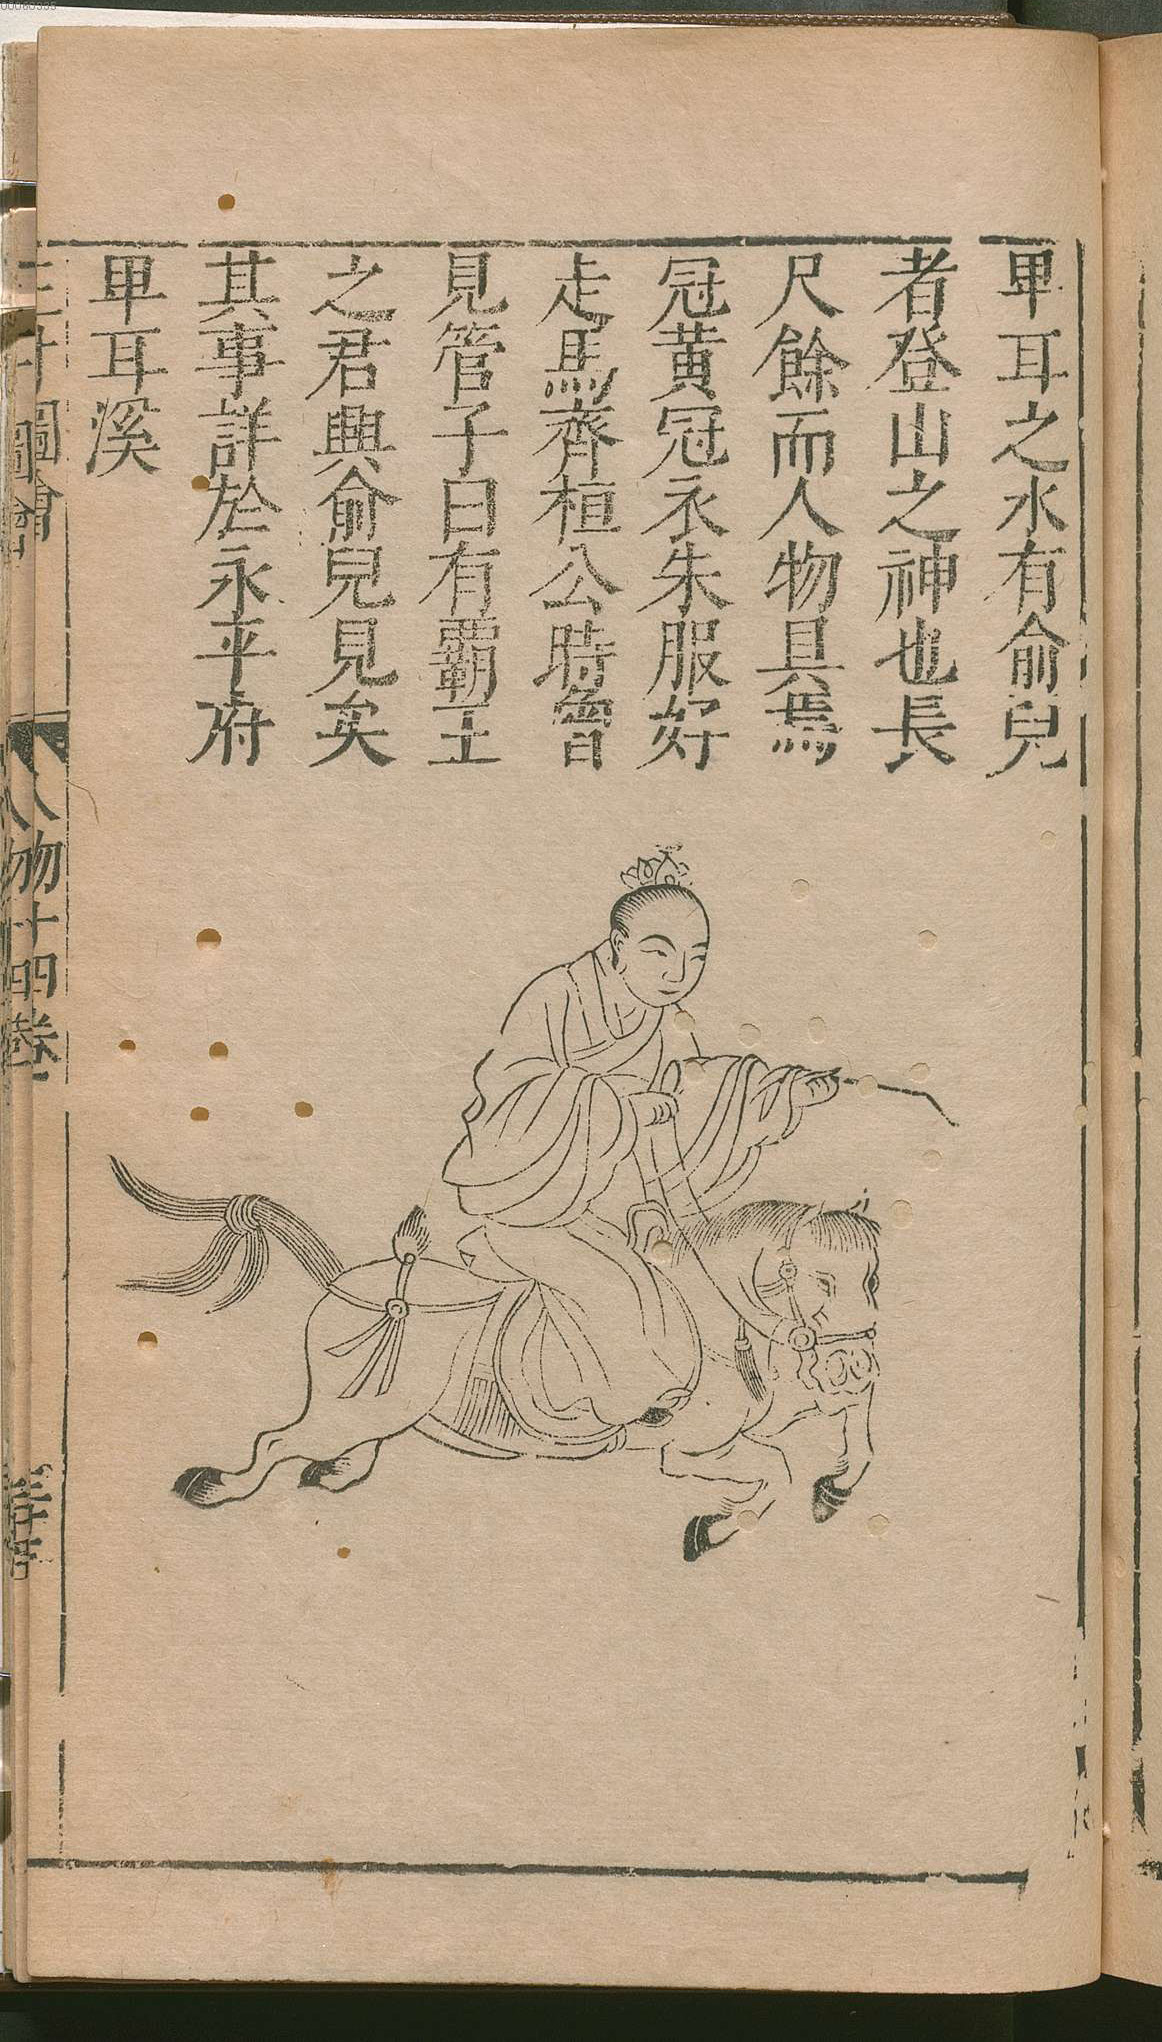 卑耳之水有俞兒
者登山之神也長
尺餘而人物具焉
冠黃冠衣朱服好
走馬齊桓公時曾
見管子曰有霸王
之君興俞兒見矣
其事詳於永平府
卑耳溪
三才圖會
人物十四卷
00060355